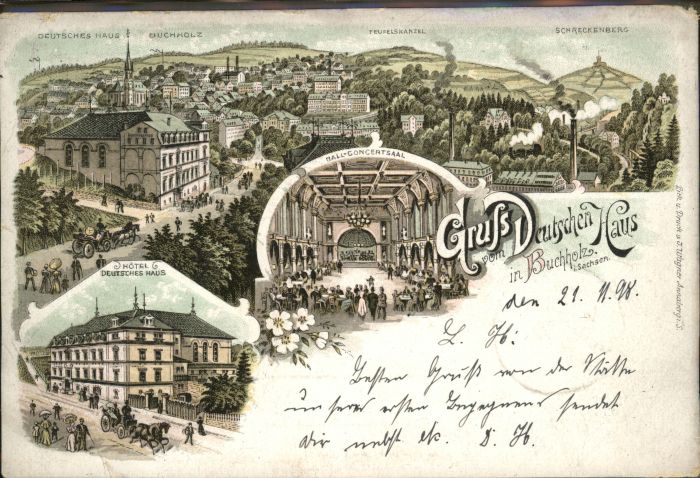 DEUTSCHES HAUS BUCHHOLZ
TEUFELSKANZEL
SCHRECKENBERG
BALL-CONCERTSAAL
Gruss vom Deutschen Haus
in Buchholz
i. Sachsen.
HÔTEL
DEUTSCHES HAUS
den 21. 11. 98.
L. H:
Besten Gruß von der Stätte
unseres ersten Begegnens sendet
dir nebst
D. H.